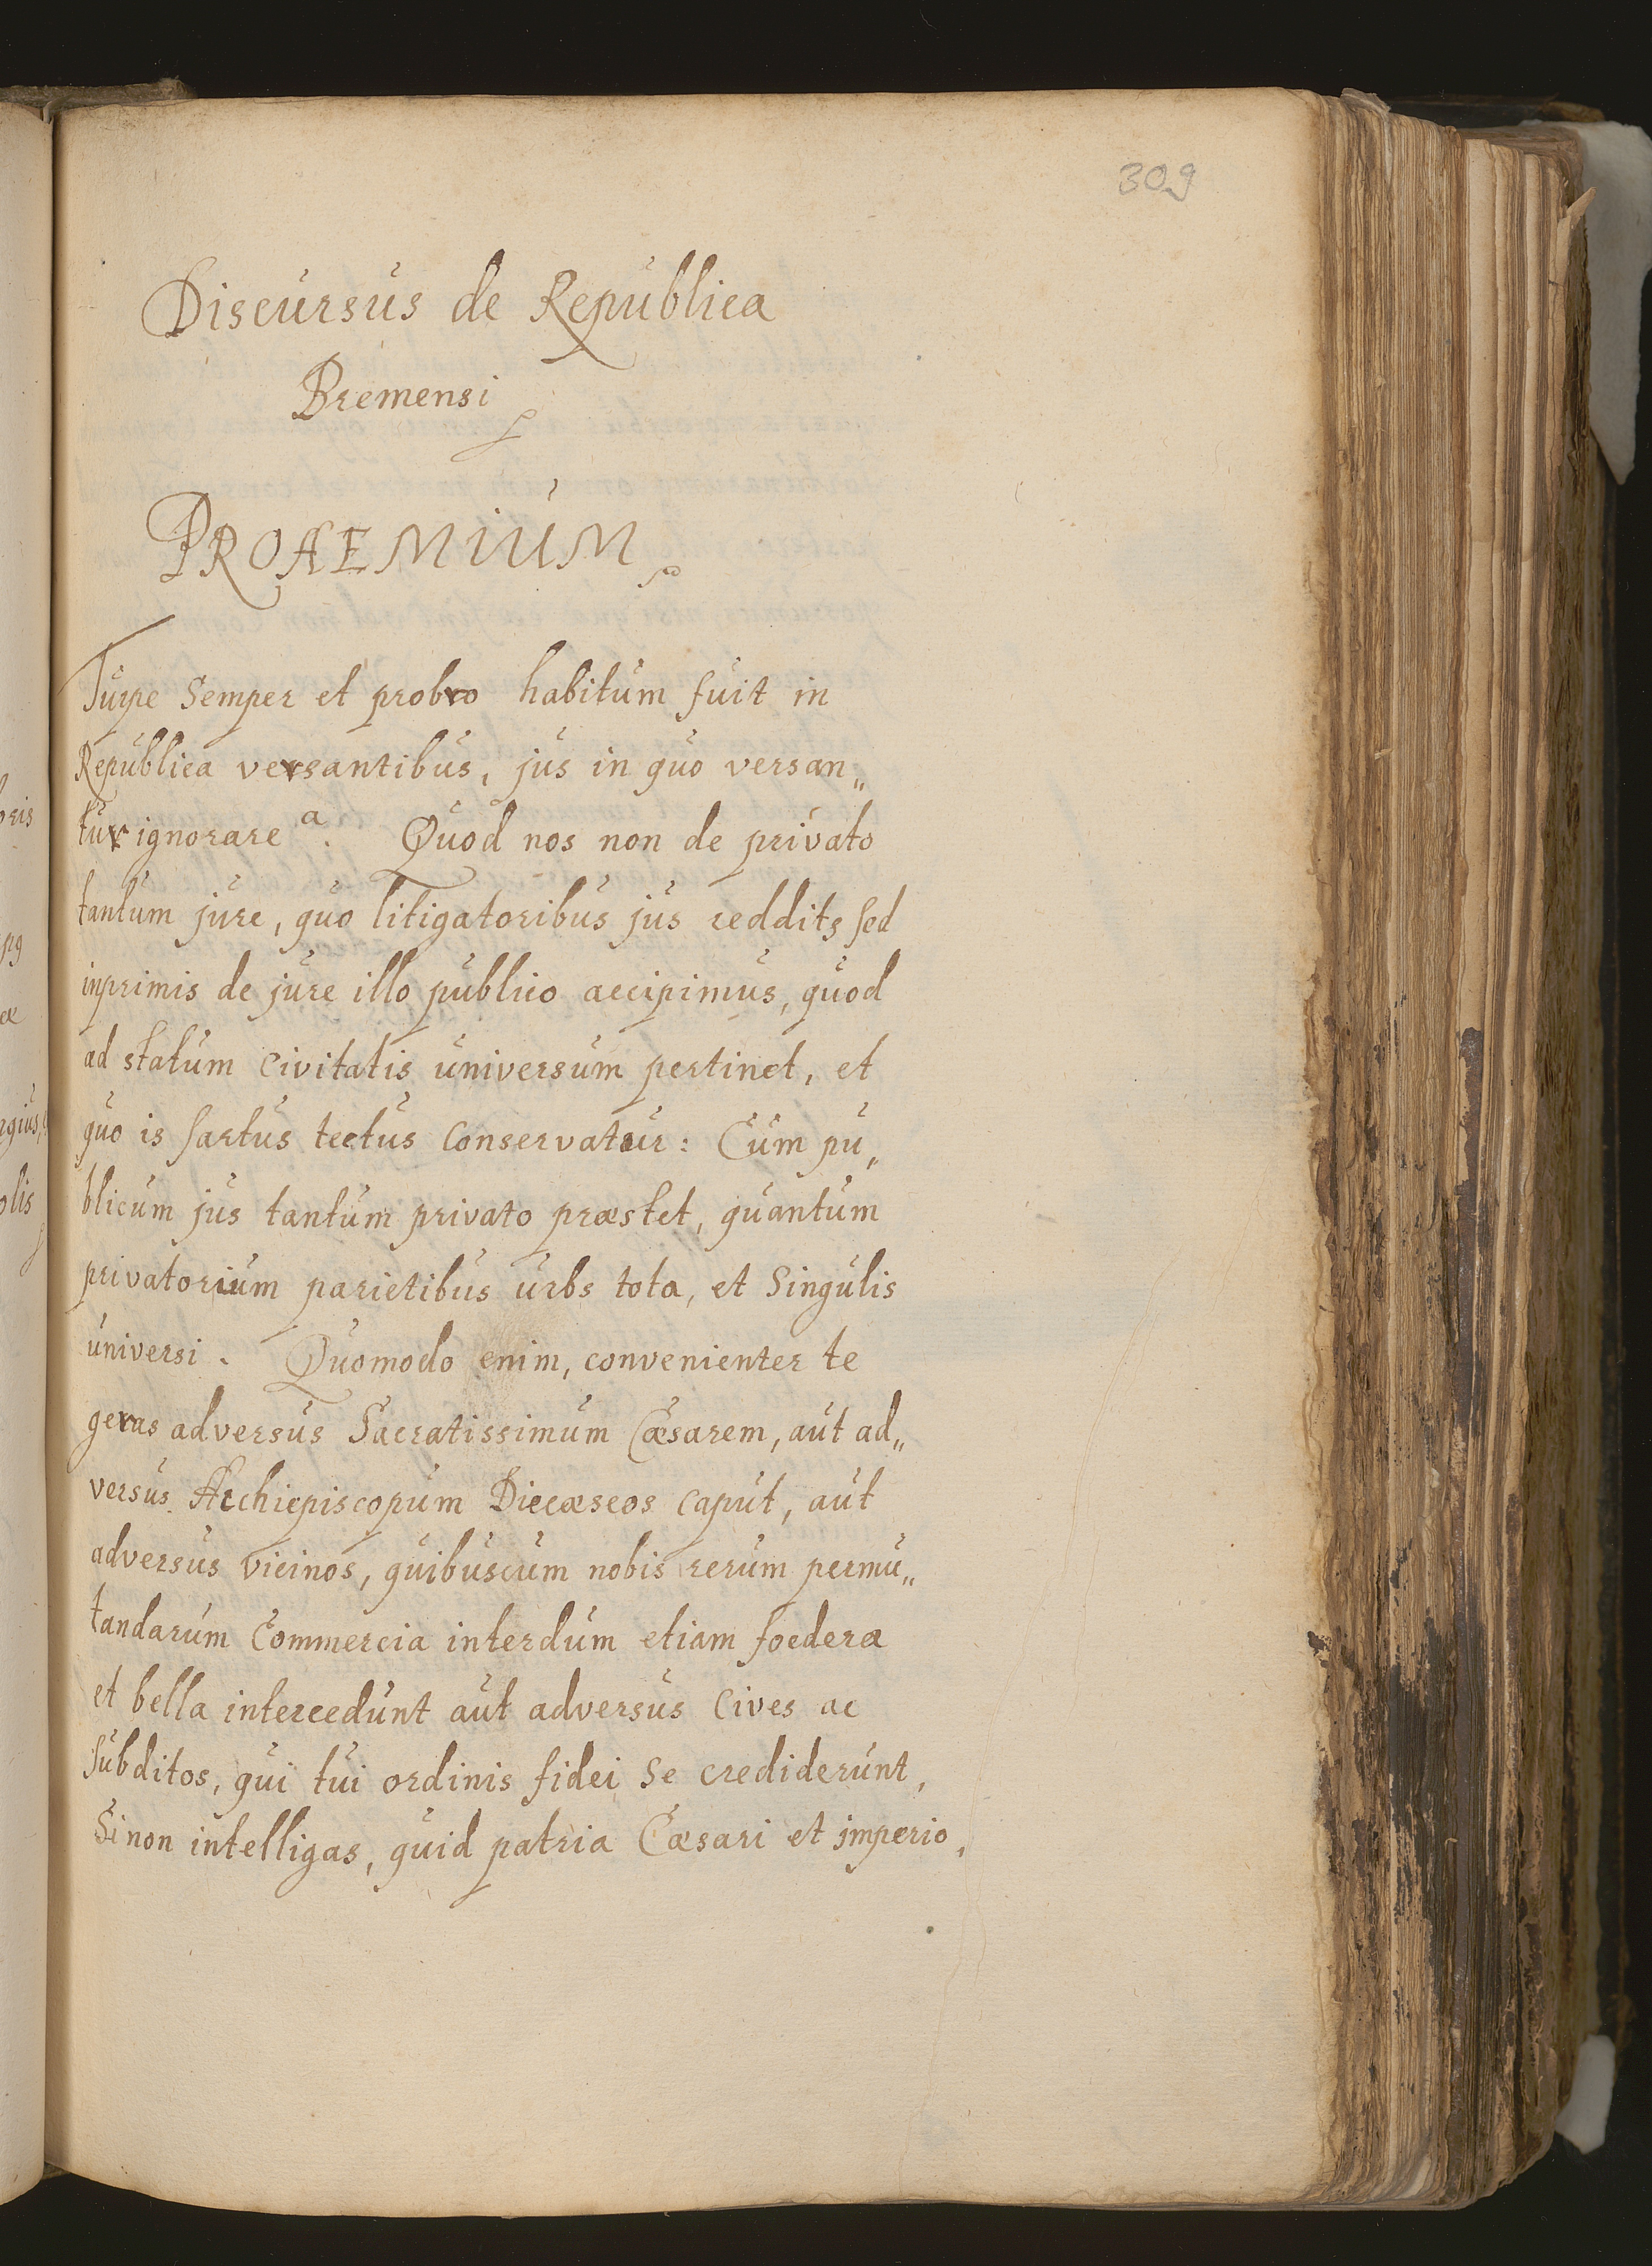 309
Discursus de Republica
Bremensi
PROAEMIUM
Turpe Semper et probro habitum fuit in
Republica versantibus, jus in quo versan„
tur ignorare a. Quod nos non de privato
tantum jure, quo litigatoribus jus reddits sed
inprimis de jure illo publico accipimus, quod
ad statum Civitatis universum pertinet, et
quo is sartus tectus Conservatur: Cum pu„
blicum jus tantum privato præstet, quantum
privatorium parietibus urbs tota, et Singulis
universi. Quomodo enim, convenienter te
geras adversus Sacratissimum Cæsarem, aut ad„
versus Archiepiscopum Diecæseos Caput, aut
adversus Vicinos, quibuscum nobis rerum permu„
tandarum Commercia interdum etiam foedera
et bella intercedunt aut adversus Cives ac
Subditos, qui tui ordinis fidei Se crediderunt,
Si non intelligas, quid patria Cæsari et jmperio,